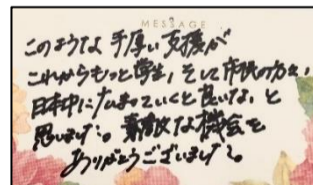 MESSAGE
このような手厚い支援が
これからもっと学生、そして市民の方々、
日本中に広まっていくと良いな、と
思いました。素敵な機会を
ありがとうございました。